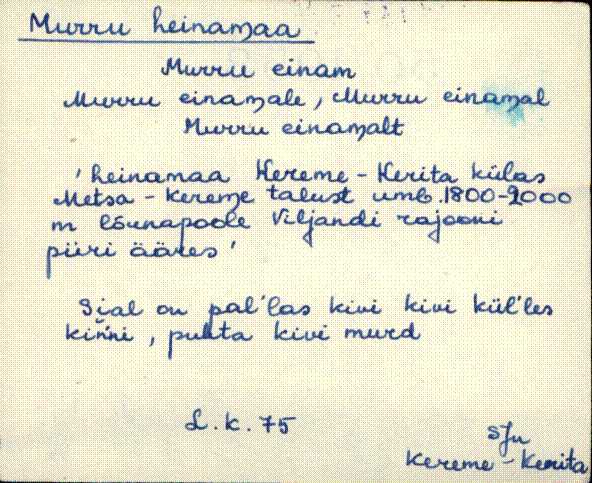 Murru heinamaa
Murru einam
Murru einamale, Murru einamal
Murru einamalt
'heinamaa Kereme-Kerita külas
Metsa-Kereme talust umb. 1800-2000
m lõunapoole Viljandi rajooni
piiri ääres'
Sial on pal'las kivi kivi kül'les
kińńi, puhta kivi murd
L.k. 75
SJn
Kereme-Kerita